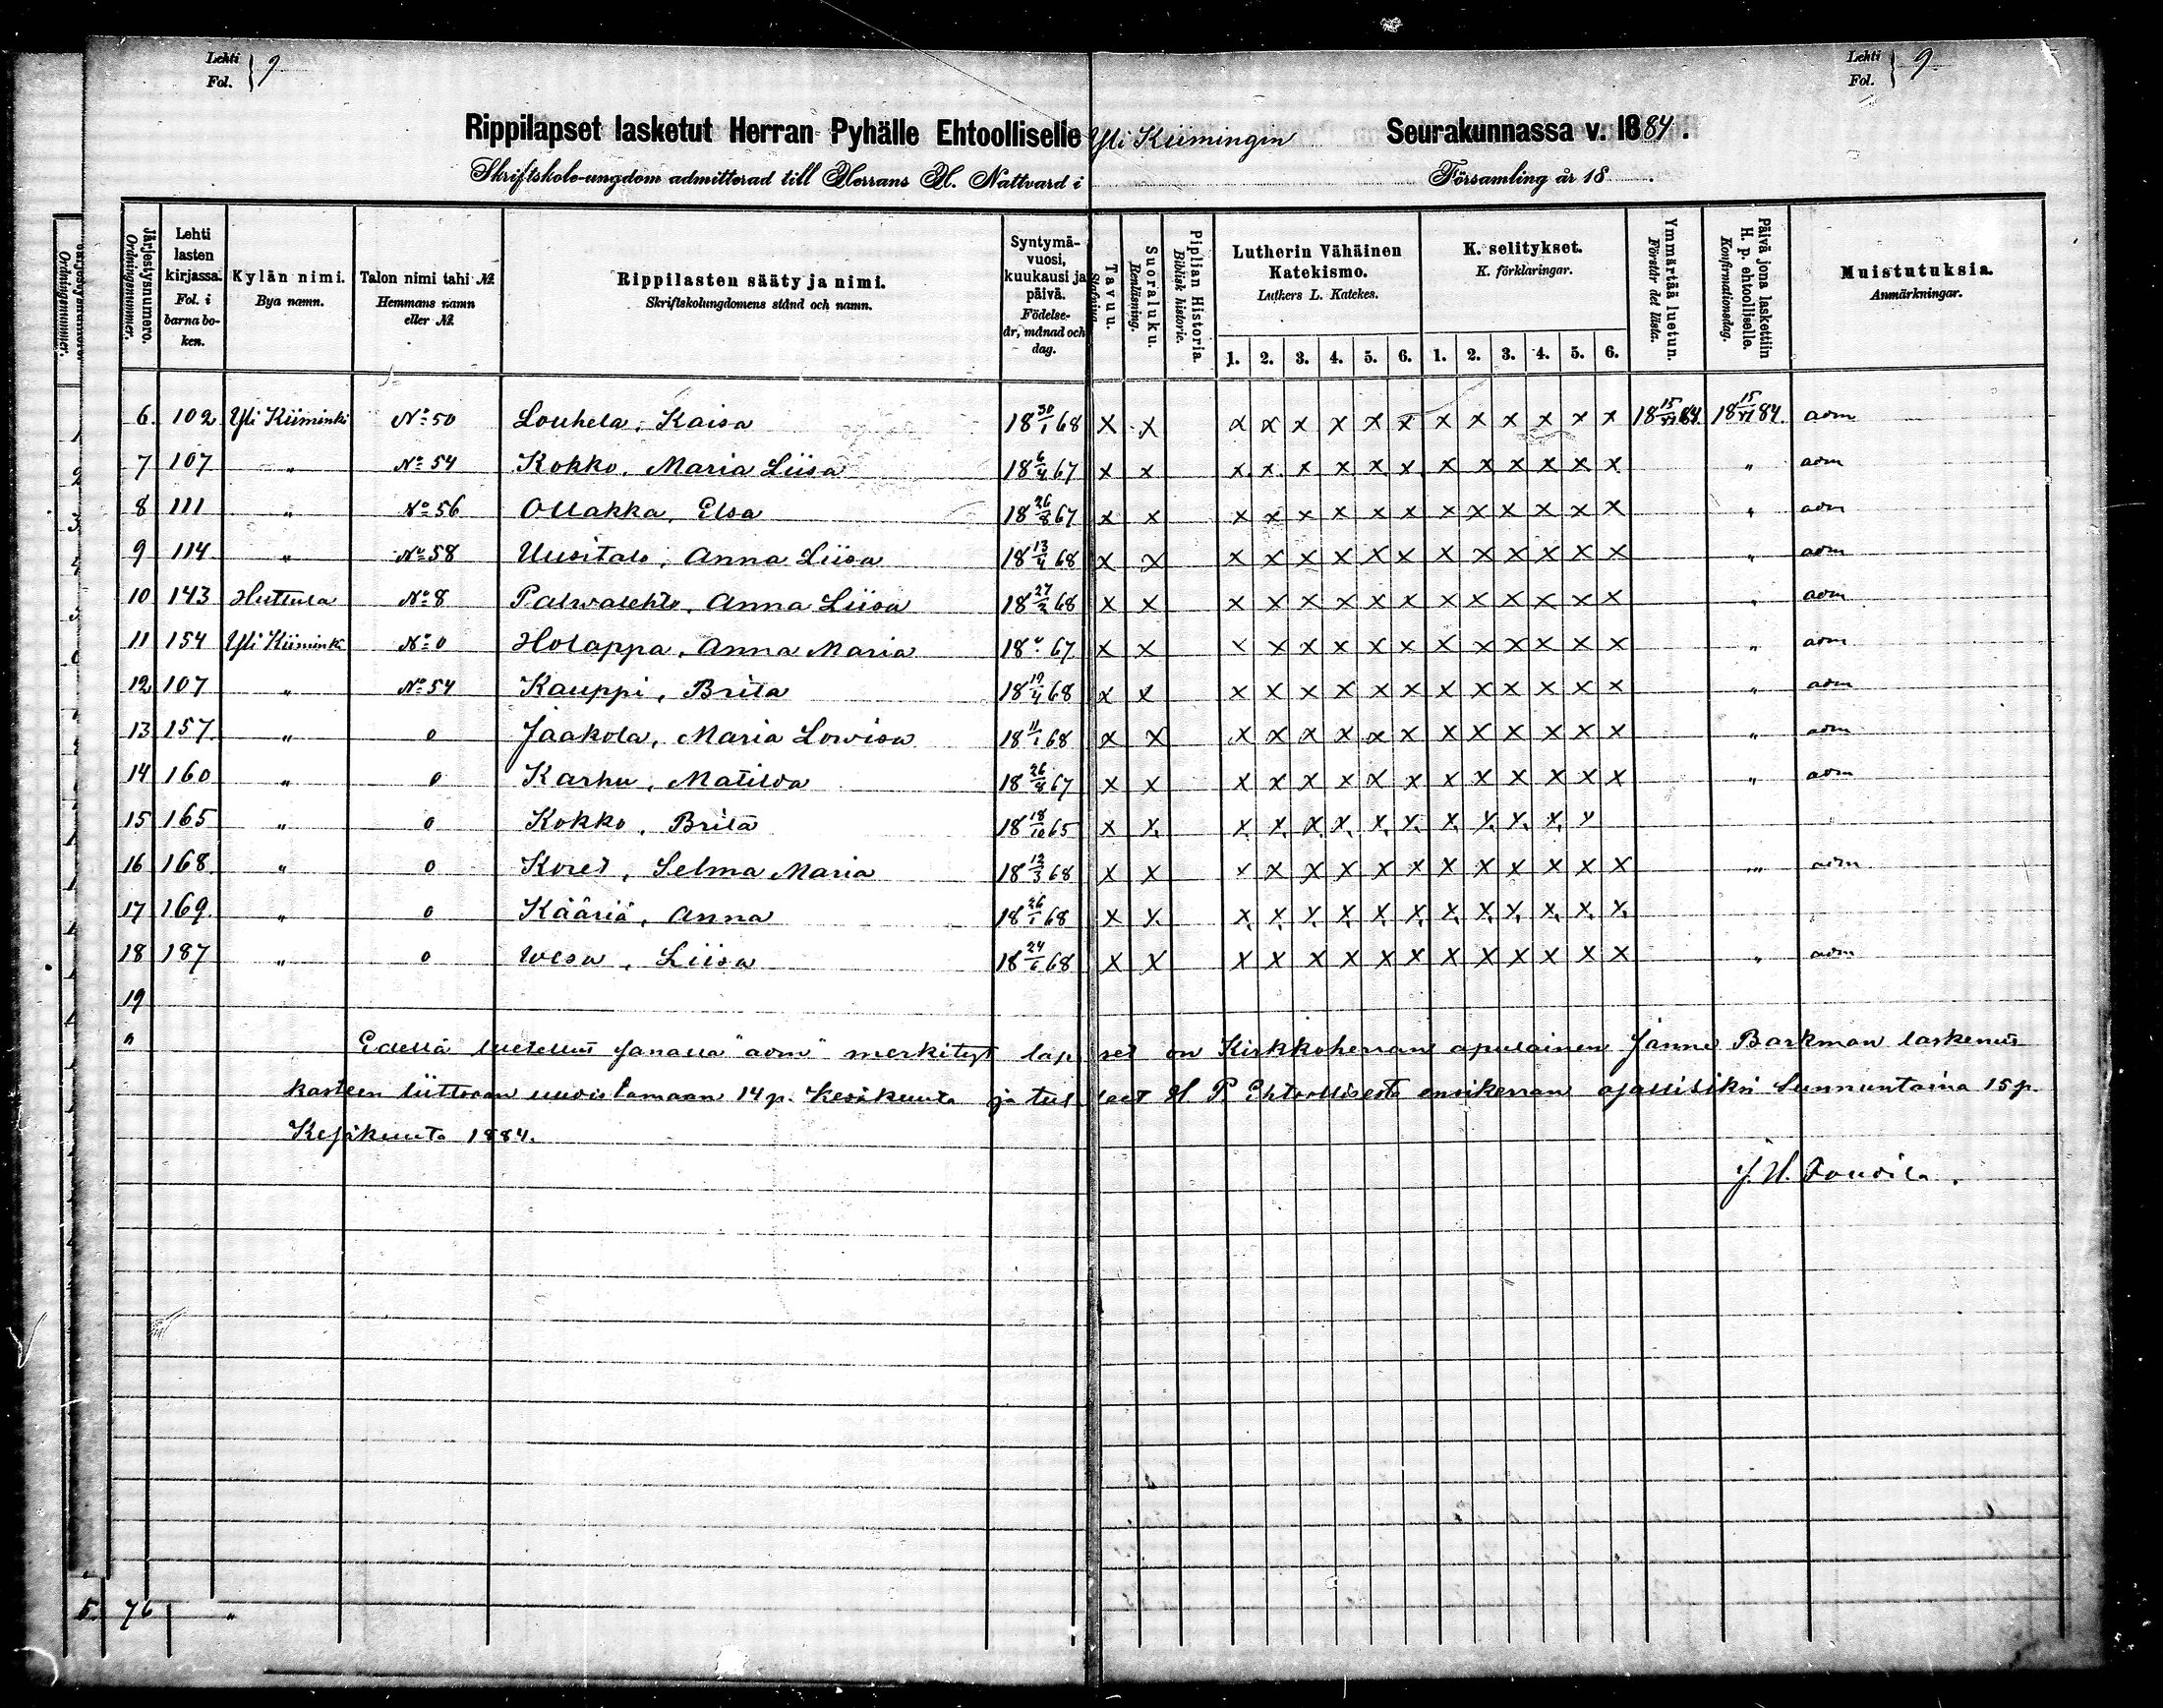 Lehti Fol. } 9
Lehti Fol. } 9
Rippilapset lasketut Herran Pyhälle Ehtoolliselle Yli Kiimingin Seurakunnassa v. 1884.
Skriftskole-ungdom admitterad till Herrans H. Nattvard i Församling år 18 .
Järjestysnumero. Ordningsnummer.
Lehti lasten kirjassa. Fol. i barnaboken.
Kylän nimi. Bya namn.
Talon nimi tahi №. Hemmans namn eller №.
Rippilasten sääty ja nimi. Skriftskolungdomens stånd och namn.
Syntymävuosi, kuukausi ja päivä. Födelseår, månad och dag.
Tavuu. Stafning.
Suoraluku. Renläsning.
Piplian Historia. Biblisk historie.
Lutherin Vähäinen Katekismo. Luthers L. Katekes.
K. selitykset. K. förklaringar.
Ymmärtää luetun. Förstår det lästa.
Päivä jona laskettiin H. p. ehtoolliselle. Konfirmationsdag.
Muistutuksia. Anmärkningar.
1. 2. 3. 4. 5. 6. 1. 2. 3. 4. 5. 6.
6. 102 Yli Kiiminki No 50 Louhela, Kaisa 18 30/1 68 x x x x x x x x x x x x x x 18 15/VI 84. 18 15/VI 84. adm
7 107 " No 54 Kokko, Maria Liisa 18 6/4 67 x x x x x x x x x x x x x x " adm
8 111 " No 56 Ollakka, Elsa 18 26/8 67 x x x x x x x x x x x x x x " adm
9 114 " No 58 Uusitalo, Anna Liisa 18 13/4 68 x x x x x x x x x x x x x x " adm
10 143 Huttula No 8 Palwalehto, Anna Liisa 18 27/2 68 x x x x x x x x x x x x x x " adm
11 154 Yli Kiiminki No 0 Holappa, Anna Maria 18 67 x x x x x x x x x x x x x x " adm
12 107 " No 54 Kauppi, Brita 18 19/4 68 x x x x x x x x x x x x x x " adm
13 157 " 0 Jaakola, Maria Lowisa 18 11/1 68 x x x x x x x x x x x x x x " adm
14 160 " 0 Karhu, Matilda 18 26/8 67 x x x x x x x x x x x x x x " adm
15 165 " 0 Kokko, Brita 18 18/10 65 x x x x x x x x x x x x x
16 168 " 0 Koret, Selma Maria 18 12/3 68 x x x x x x x x x x x x x x " adm
17 169 " 0 Kääriä, Anna 18 26/1 68 x x x x x x x x x x x x x x
18 187 " 0 Wesa, Liisa 18 24/6 68 x x x x x x x x x x x x x x " adm
19
" Edellä luetellut sanalla "adm" merkityt lapset on Kirkkoherran apulainen Janne Barkman laskenut
kasteen liittoaan uudistamaan 14 p. Kesäkuuta ja tulleet H. P. Ehtoollisesta ensikerran osallisiksi Sunnuntaina 15 p.
Kesäkuuta 1884.
5. 76 "